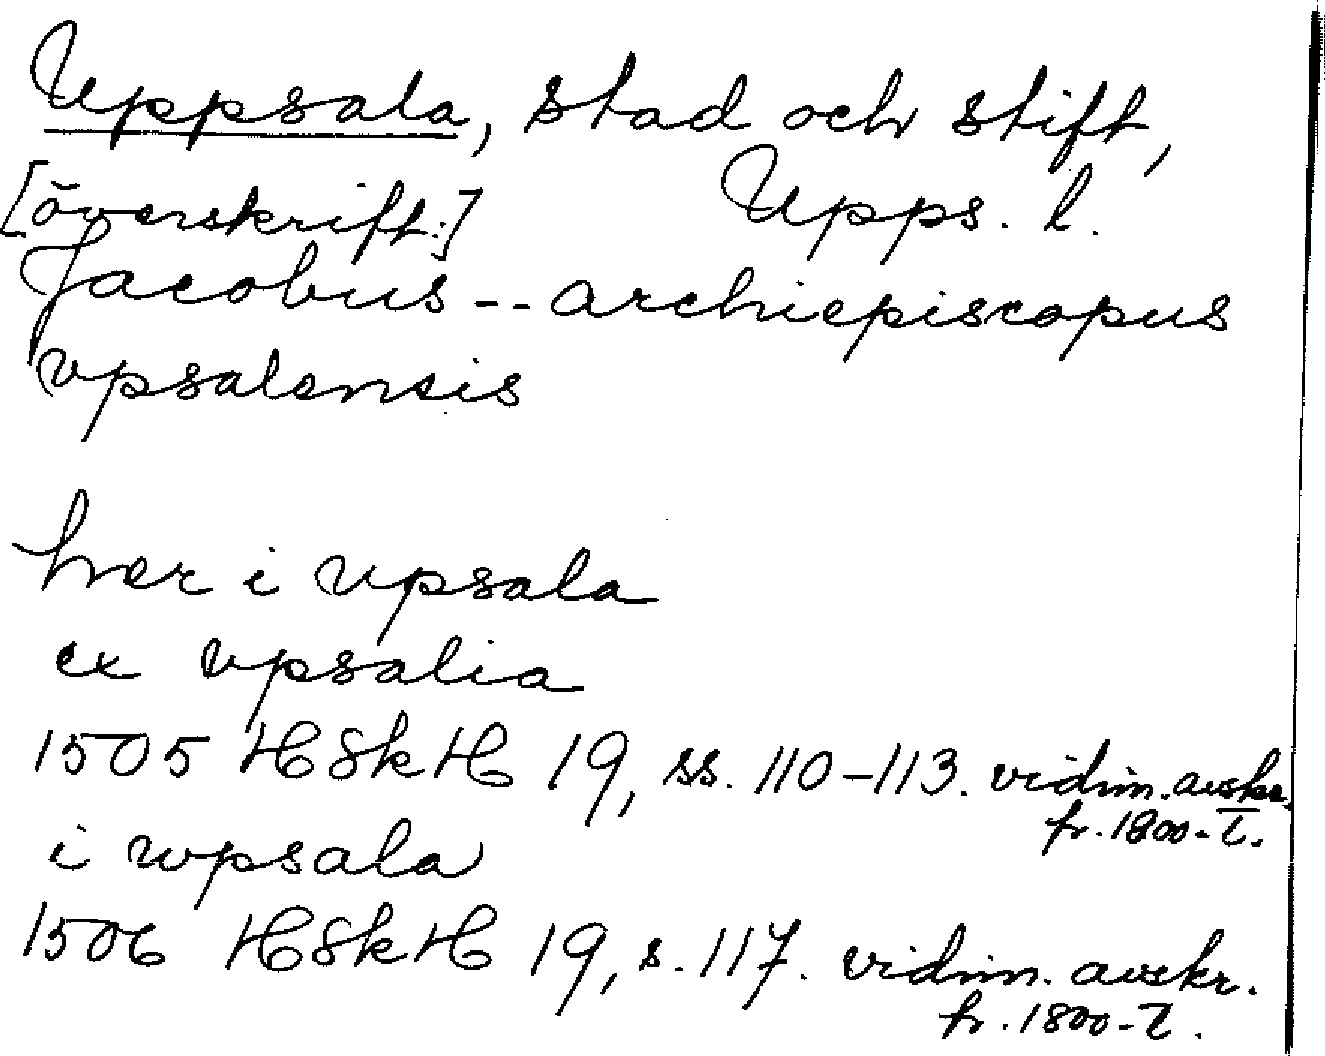 Uppsala, stad och stift,
[överskrift:] Upps. l.
Jacobus -- archiepiscopus
vpsalensis
hær i vpsala
ex vpsalia
1505 HSkH 19, ss. 110-113. vidim. avskr.
fr. 1800-t.
i wpsala
1506 HSkH 19, s. 117. vidim. avskr.
fr. 1800-t.